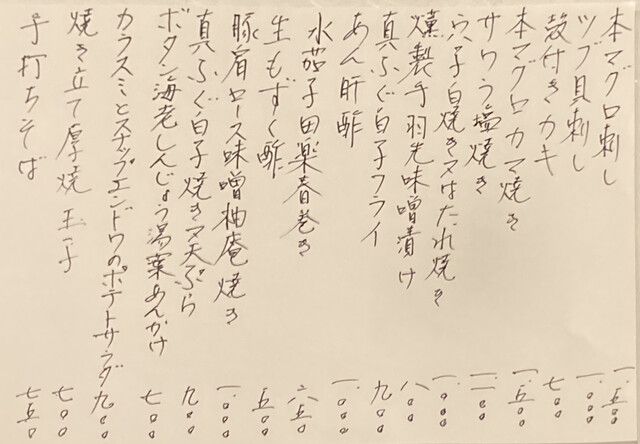 本マグロ刺し 一.五〇〇
ツブ貝刺し 一.〇〇〇
殻付きカキ 七〇〇
本マグロカマ焼き 一.五〇〇
サワラ塩焼き
穴子白焼き又はたれ焼き 一.〇〇〇
燻製手羽先味噌漬け 八〇〇
真ふぐ白子フライ 九〇〇
あん肝酢 一.〇〇〇
水茄子田楽春巻き 六五〇
生もずく酢 五〇〇
豚肩ロース味噌柚庵焼き 一.〇〇〇
真ふぐ白子焼き又天ぷら 九〇〇
ボタン海老しんじょう湯葉あんかけ 七〇〇
カラスミとスナップエンドウのポテトサラダ 九〇〇
焼き立て厚焼玉子 七〇〇
手打ちそば 七五〇